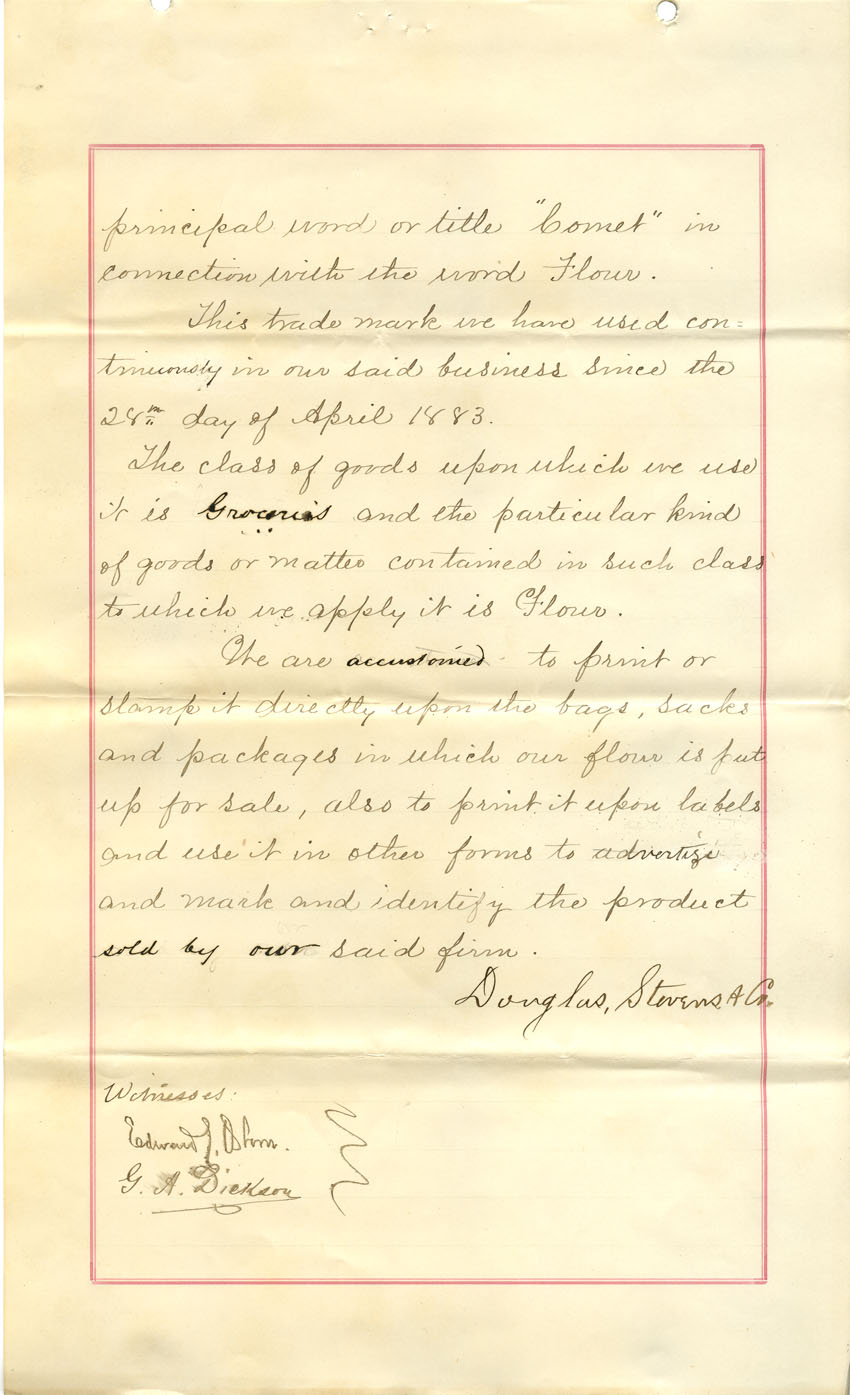 principal word or title "Comet" in
connection with the word Flour.
This trade mark we have used con=
tinuously in our said business since the
28th day of April 1883.
The class of goods upon which we use
it is Groceries and the particular kind
of goods or matter contained in such class
to which we apply it is Flour.
We are accustomed to print or
stamp it directly upon the bags, sacks
and packages in which our flour is put
up for sale, also to print it upon labels
and use it in other forms to advertize
and mark and identify the product
sold by our said firm.
Douglas, Stevens & Co.
Witnesses:
Edward J.
G. A. Dickson